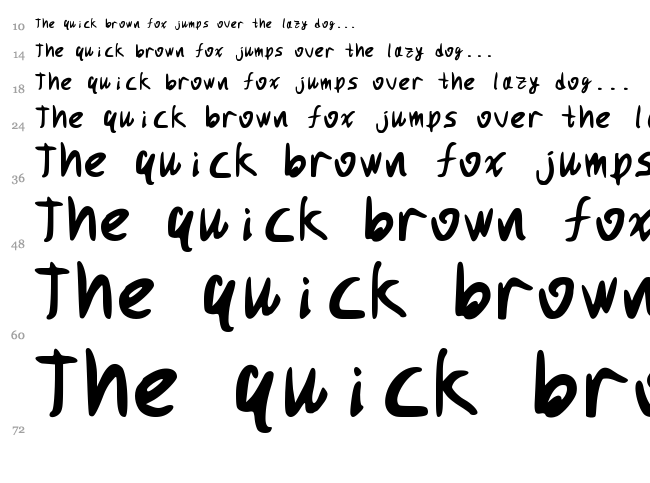 10 The quick brown fox jumps over the lazy dog...
14 The quick brown fox jumps over the lazy dog...
18 The quick brown fox jumps over the lazy dog...
24 The quick brown fox jumps over the l
36 The quick brown fox jumps
48 The quick brown fox
60 The quick brown
72 The quick bro